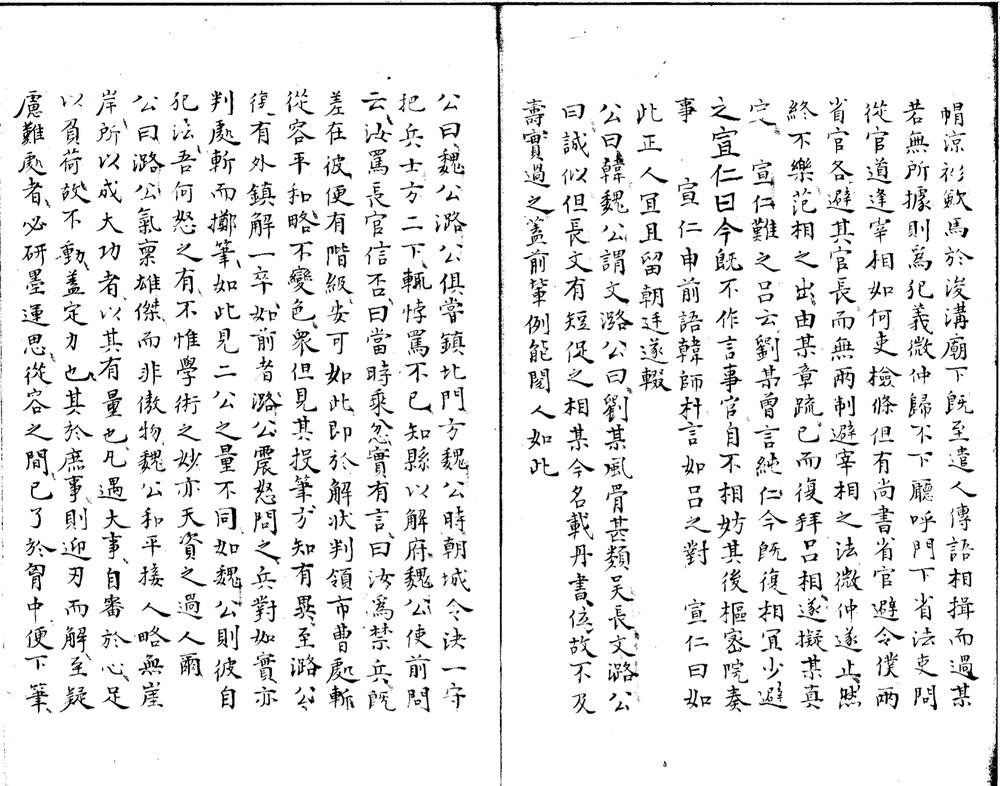 帽涼衫歇馬於浚溝廟下既至遣人傳語相揖而過某
若無所據則為犯義微仲歸不下廳呼門下省法吏問
從官道逢宰相如何吏檢條但有尚書省官避令僕兩
省官各避其官長而無兩制避宰相之法微仲遂止然
終不樂范相之出由某章疏已而復拜呂相遂擬某真
定　宣仁難之呂云劉某曾言純仁今既復相宜少避
之宣仁曰今既不作言事官自不相妨其後樞密院奏
事　宣仁申前語韓師朴言如呂之對　宣仁曰如
此正人宜且留朝廷遂輟
公曰韓魏公謂文潞公曰劉某風骨甚類吴長文潞公
曰誠似但長文有短促之相某今名載丹書位故不及
壽實過之蓋前輩例能閱人如此
公曰魏公潞公俱嘗鎮北門方魏公時朝城令決一守
把兵士方二下輒悖罵不已知縣以解府魏公使前問
云汝罵長官信否曰當時乘忿實有言曰汝為禁兵既
差在彼便有階級安可如此即於解状判領市曹處斬
從容平和略不變色衆但見其投筆方知有異至潞公
復有外鎮解一卒如前者潞公震怒問之兵對如實亦
判處斬而擲筆如此見二公之量不同如魏公則彼自
犯法吾何怒之有不惟學術之妙亦天資之過人爾
公曰潞公氣稟雄傑而非傲物魏公和平接人略無崖
岸所以成大功者以其有量也凡遇大事自審於心足
以負荷故不動蓋定力也其於庶事則迎刃而解至疑
慮難處者必研墨運思從容之間已了於胷中便下筆